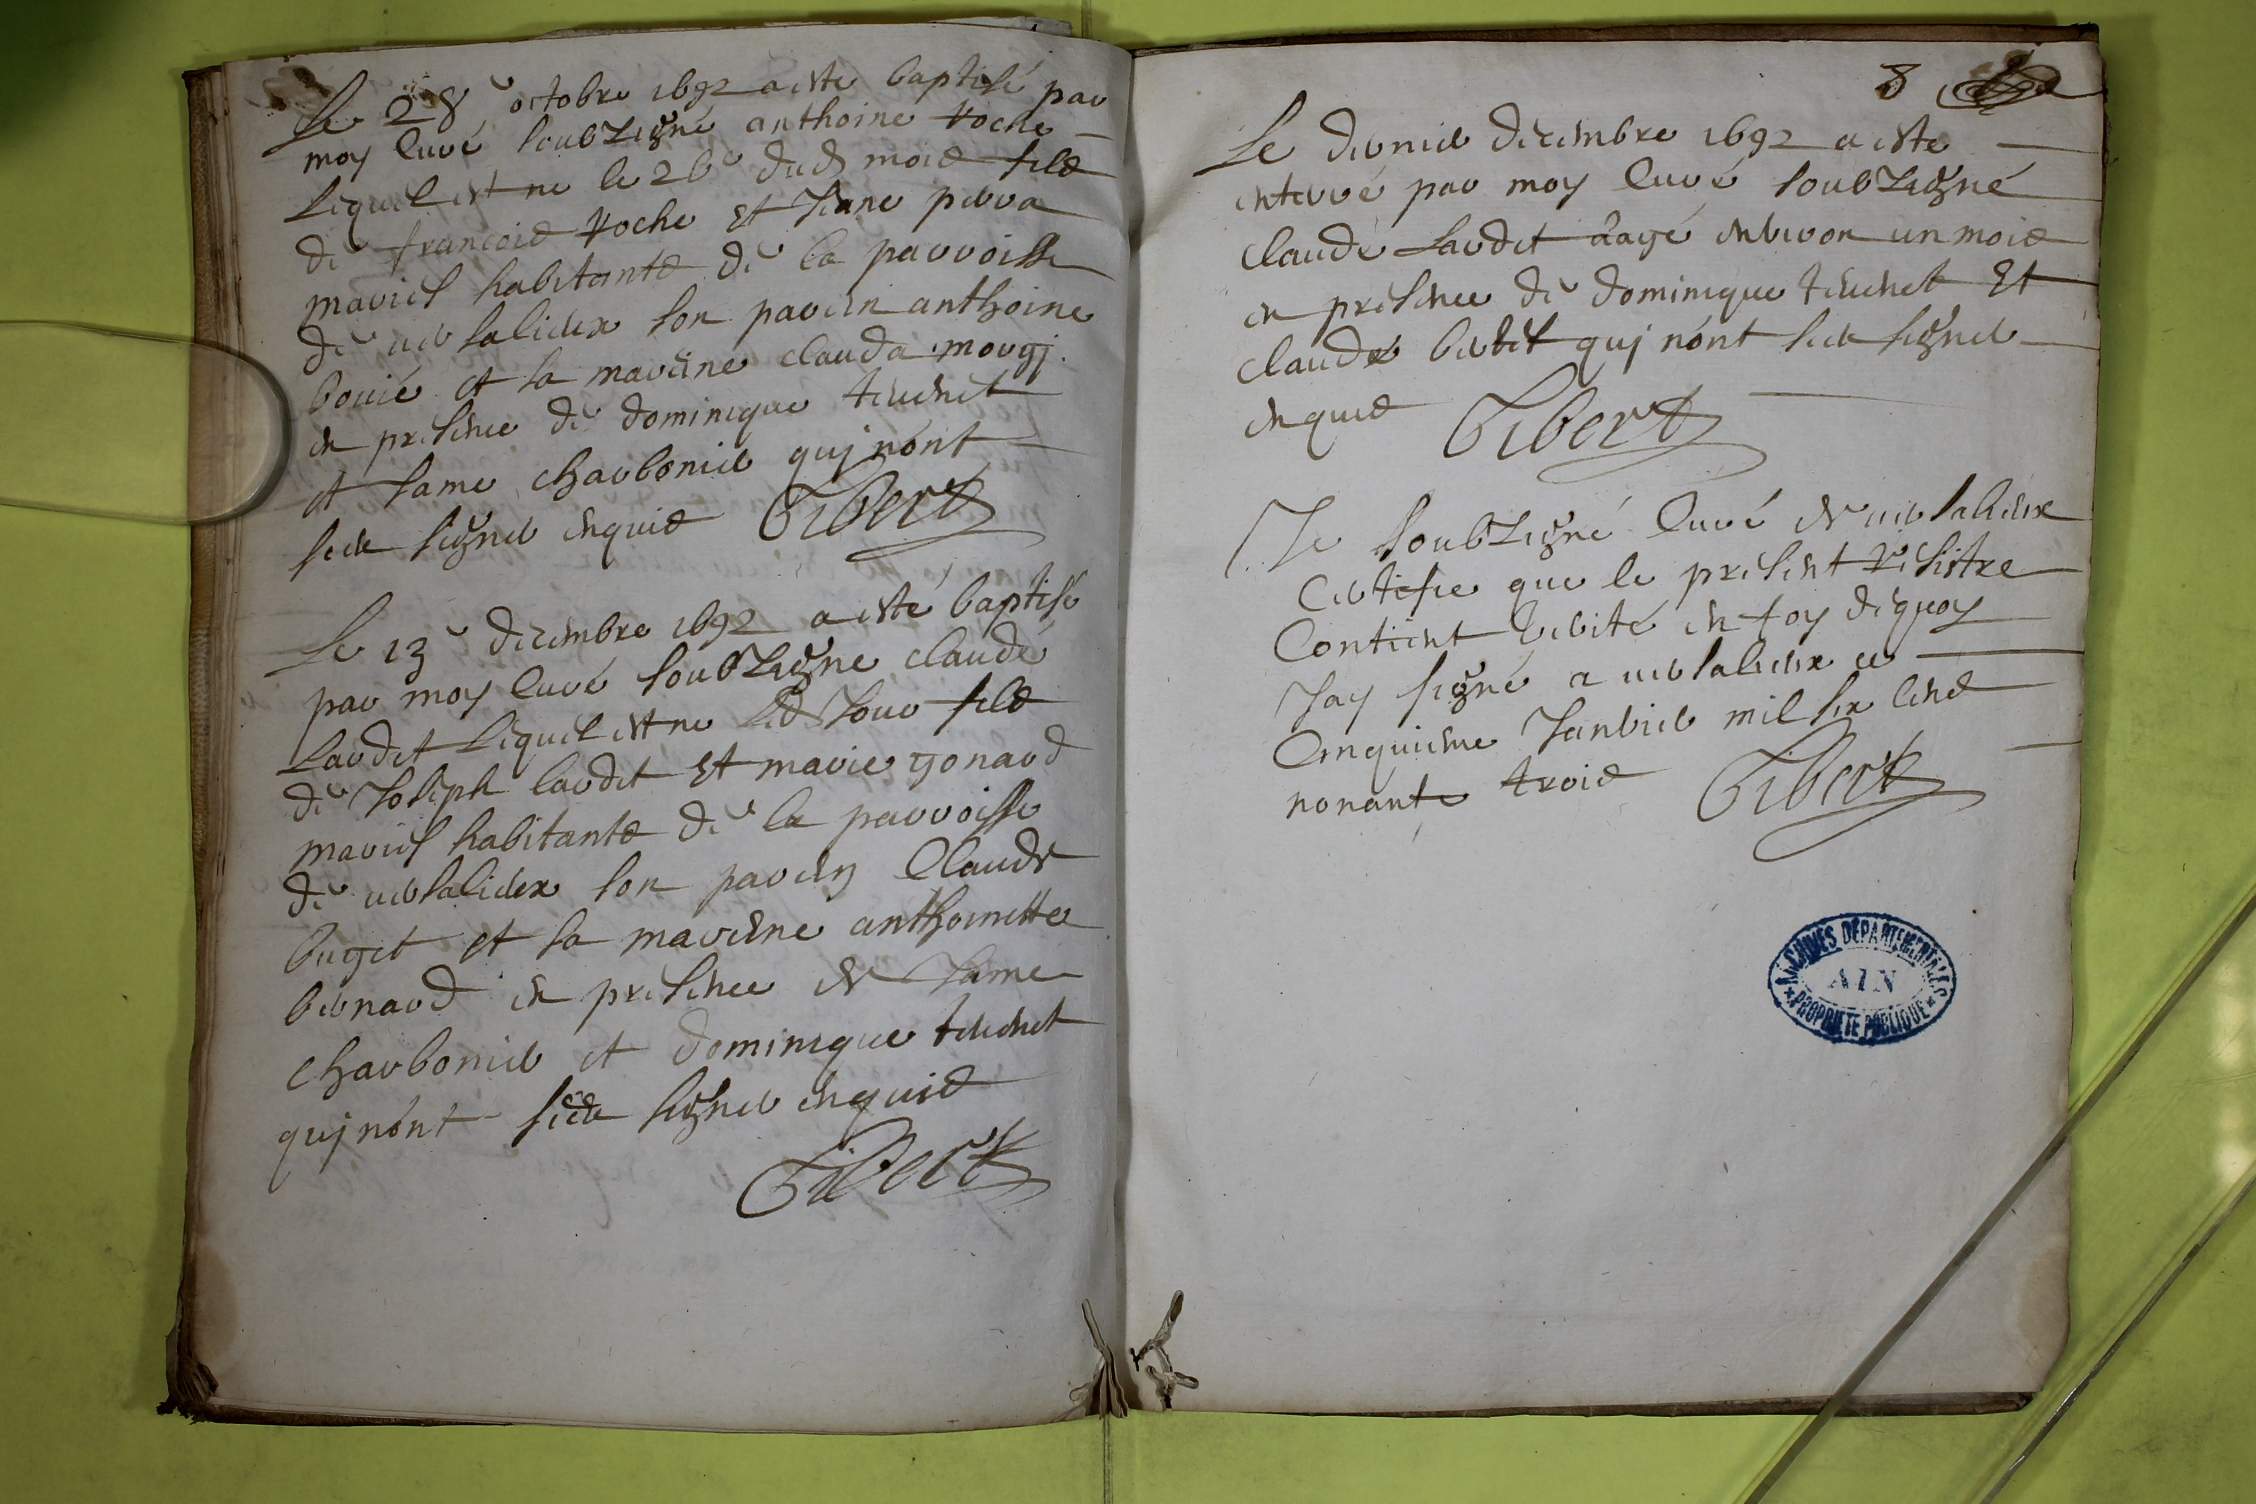 Le 28e octobre 1692 a esté baptisé par
moy curé soubzigné anthoine Roche
lequel est né le 26e dud mois fils
de francois Roche Et Jeane perra
mariés habitants de la parroisse
de versalieux son parein anthoine
bouié et sa mareine clauda mougj
en presence de dominique tevenet
et Jame charbonier quj nónt
sceu signer enquis Gibert
Le 13e decembre 1692 a esté baptisé
par moy curé soubzigné claude
lardet lequel est né led Jour fils
de Joseph lardet Et marie gonard
mariés habitants de la parroisse
de versalieux son parein Claude
buget et sa mareine anthoinette
bernard en presence de Jame
charbonier et dominique tevenet
quj nónt sceu signer enquis
Gibert
8
Le dernier decembre 1692 a esté
enterré par moy curé soubzigné
claude Lardet aagé environ un mois
en presence de dominique tevenet Et
claude buget quj nónt sceu signer
enquis Gibert
Je soubzigné curé de versalieux
Certifie que le present Resistre
Contient verité en foy dequoy
Jay signé a versalieux ce
Cinquieme Janvier mil six cens
nonante trois Gibert
ARCHIVES DÉPARTEMENTALES
AIN
PROPRIÉTÉ PUBLIQUE